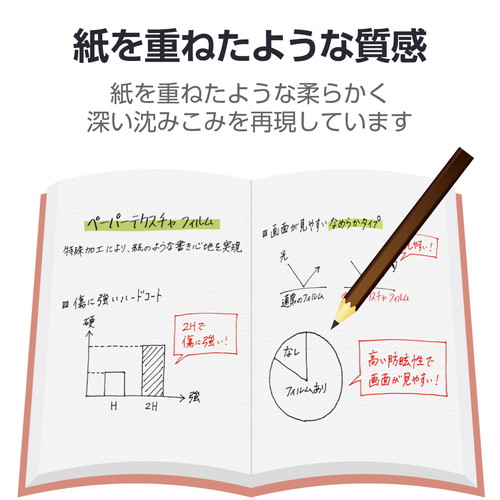 紙を重ねたような質感
紙を重ねたような柔らかく
深い沈みこみを再現しています
ペーパーテクスチャフィルム
特殊加工により、紙のような書き心地を実現
傷に強いハードコート
硬
2Hで
傷に強い!
H 2H 強
画面が見やすいなめらかタイプ
光
やすい!
通常のフィルム
スチャフィルム
なし
フィルムあり
高い防眩性で
画面が見やすい!